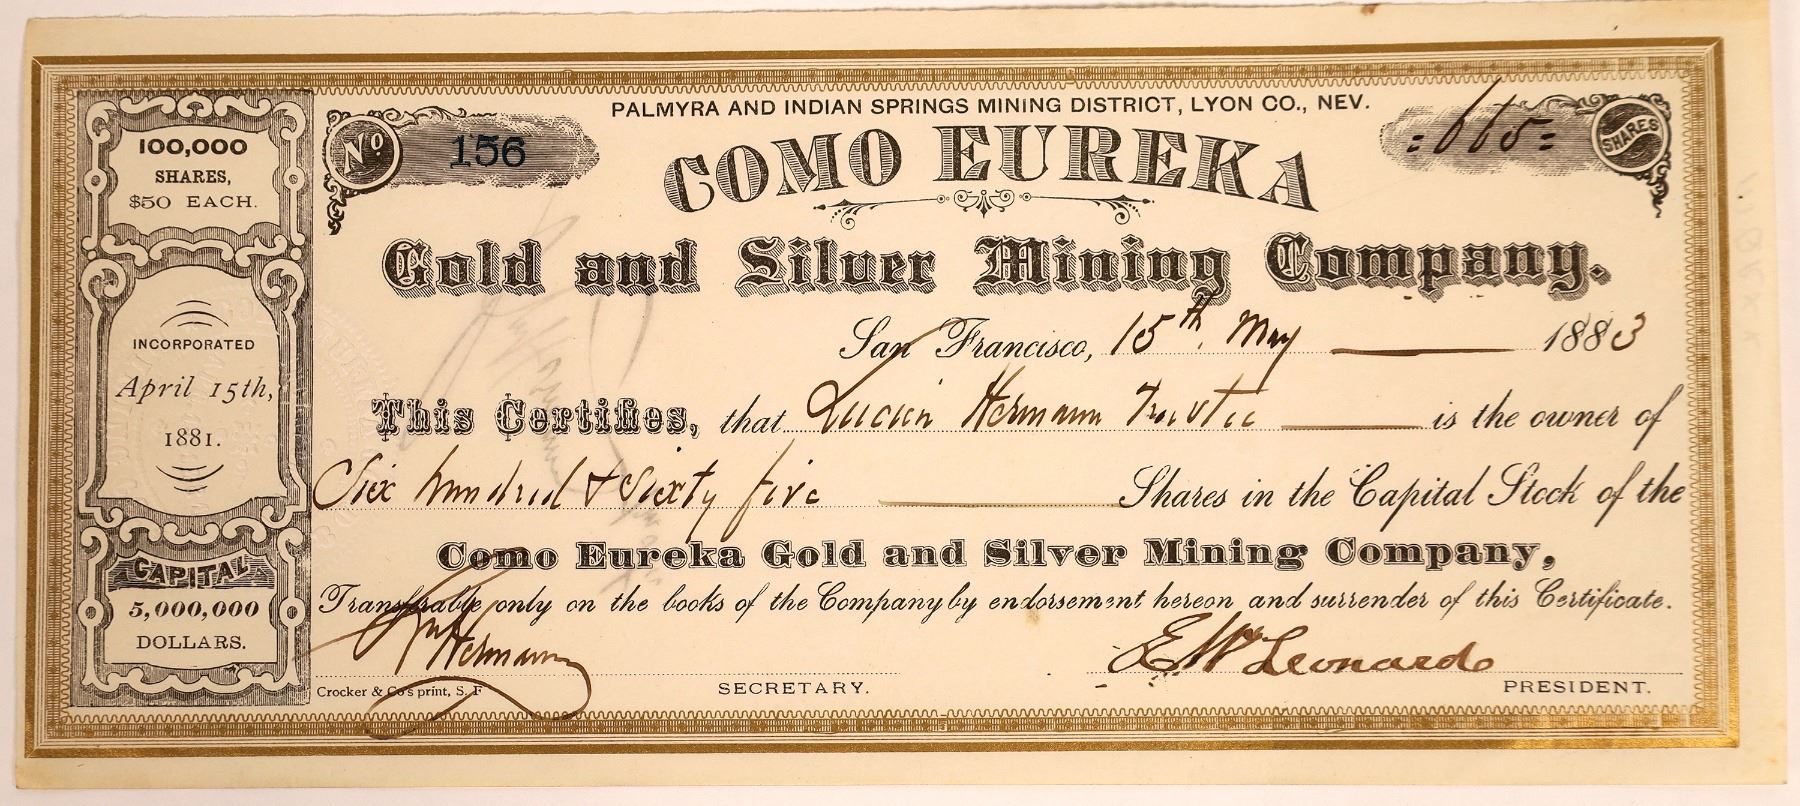 PALMYRA AND INDIAN SPRINGS MINING DISTRICT, LYON CO., NEV.
No. 156
=665= SHARES
COMO EUREKA
Gold and Silver Mining Company.
100,000
SHARES,
$50 EACH.
INCORPORATED
April 15th,
1881.
CAPITAL
5,000,000
DOLLARS.
San Francisco, 15th. May 1883
This Certifies, that Lucien Hermann Trustee is the owner of
Six hundred & Sixty five Shares in the Capital Stock of the
Como Eureka Gold and Silver Mining Company,
Transferable only on the books of the Company by endorsement hereon and surrender of this Certificate.
Hermann
E W Leonardo
Crocker & Co's print, S. F
SECRETARY.
PRESIDENT.